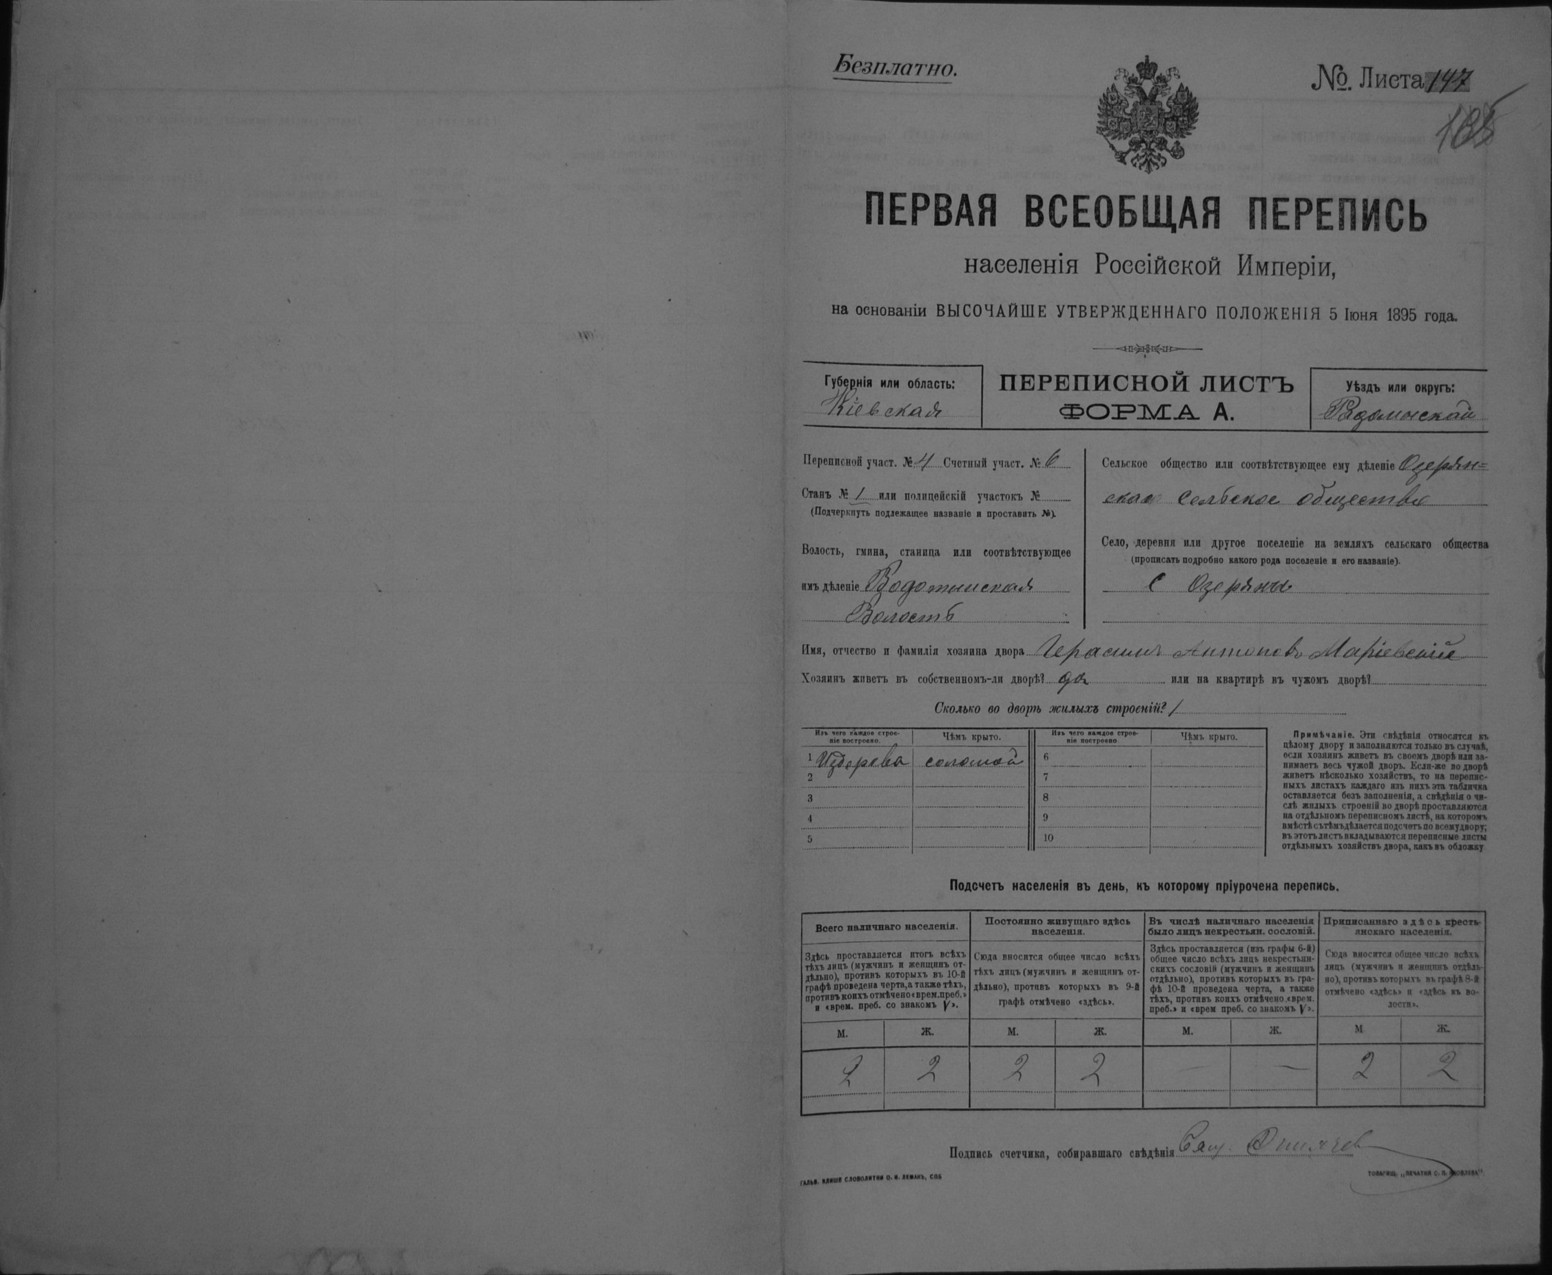 Безплатно.
№. Листа 147
ПЕРВАЯ ВСЕОБЩАЯ ПЕРЕПИСЬ
населенія Россійской Имперіи,
на основаніи ВЫСОЧАЙШЕ УТВЕРЖДЕННАГО ПОЛОЖЕНІЯ 5 Іюня 1895 года.
Губернія или область:
Кіевская
ПЕРЕПИСНОЙ ЛИСТЪ
ФОРМА А.
Уѣздъ или округъ:
Переписной участ. № 4 Счетный участ. № 6
Станъ № 1 или полицейскій участокъ №
(Подчеркнуть подлежащее названіе и проставить №).
Волость, гмина, станица или соотвѣтствующее
имъ дѣленіе Водотыиская
Волость
Сельское общество или соотвѣтствующее ему дѣленіе Озерян=
ское сельское общество
Село, деревня или другое поселеніе на земляхъ сельскаго общества
(прописать подробно какого рода поселеніе и его названіе).
с Озеряны
Имя, отчество и фамилія хозяина двора Герасимъ Антоновъ Маріевскій
Хозяинъ живетъ въ собственномъ-ли дворѣ? да или на квартирѣ въ чужомъ дворѣ?
Сколько во дворѣ жилыхъ строеній? 1
Изъ чего каждое строе-
ніе построено.
Чѣмъ крыто.
Изъ чего каждое строе-
ніе построено
Чѣмъ крыто.
1 Издерева соломой 6
2 7
3 8
4 9
5 10
Примѣчаніе. Эти свѣдѣнія относятся къ
цѣлому двору и заполняются только въ случаѣ,
если хозяинъ живетъ въ своемъ дворѣ или за-
нимаетъ весь чужой дворъ. Если-же во дворѣ
живетъ нѣсколько хозяйствъ, то на перепис-
ныхъ листахъ каждаго изъ нихъ эта табличка
оставляется безъ заполненія, а свѣдѣнія о чи-
слѣ жилыхъ строеній во дворѣ проставляются
на отдѣльномъ переписномъ листѣ, на которомъ
вмѣстѣ съ тѣмъ дѣлается подсчетъ по всему двору;
въ этотъ листъ вкладываются переписные листы
отдѣльныхъ хозяйствъ двора, какъ въ обложку
Подсчетъ населенія въ день, къ которому пріурочена перепись.
Всего наличнаго населенія.
Здѣсь проставляется итогъ всѣхъ
тѣхъ лицъ (мужчинъ и женщинъ от-
дѣльно), противъ которыхъ въ 10-й
графѣ проведена черта, а также тѣхъ,
противъ коихъ отмѣчено «врем. преб.»
и «врем. преб. со знакомъ V».
Постоянно живущаго здѣсь
населенія.
Сюда вносится общее число всѣхъ
тѣхъ лицъ (мужчинъ и женщинъ от-
дѣльно), противъ которыхъ въ 9-й
графѣ отмѣчено «здѣсь».
Въ числѣ наличнаго населенія
было лицъ некрестьян. сословій.
Здѣсь проставляется (изъ графы 6-й)
общее число всѣхъ лицъ некрестьян-
скихъ сословій (мужчинъ и женщинъ
отдѣльно), противъ которыхъ въ гра-
фѣ 10-й проведена черта, а также
тѣхъ, противъ коихъ отмѣчено «врем.
преб.» и «врем преб. со знакомъ V».
Приписаннаго здѣсь кресть-
янскаго населенія.
Сюда вносится общее число всѣхъ
лицъ (мужчинъ и женщинъ отдѣль-
но), противъ которыхъ въ графѣ 8-й
отмѣчено «здѣсь» и «здѣсь къ во-
лости».
М. Ж. М. Ж. М. Ж. М Ж.
2 2 2 2 — — 2 2
Подпись счетчика, собиравшаго свѣдѣнія
ГАЛЬВ. КЛИШЕ СЛОВОЛИТНИ О. И. ЛЕМАНЪ, СПБ
ТОВАРИЩ. „ПЕЧАТНЯ С. П. ЯКОВЛЕВА“.